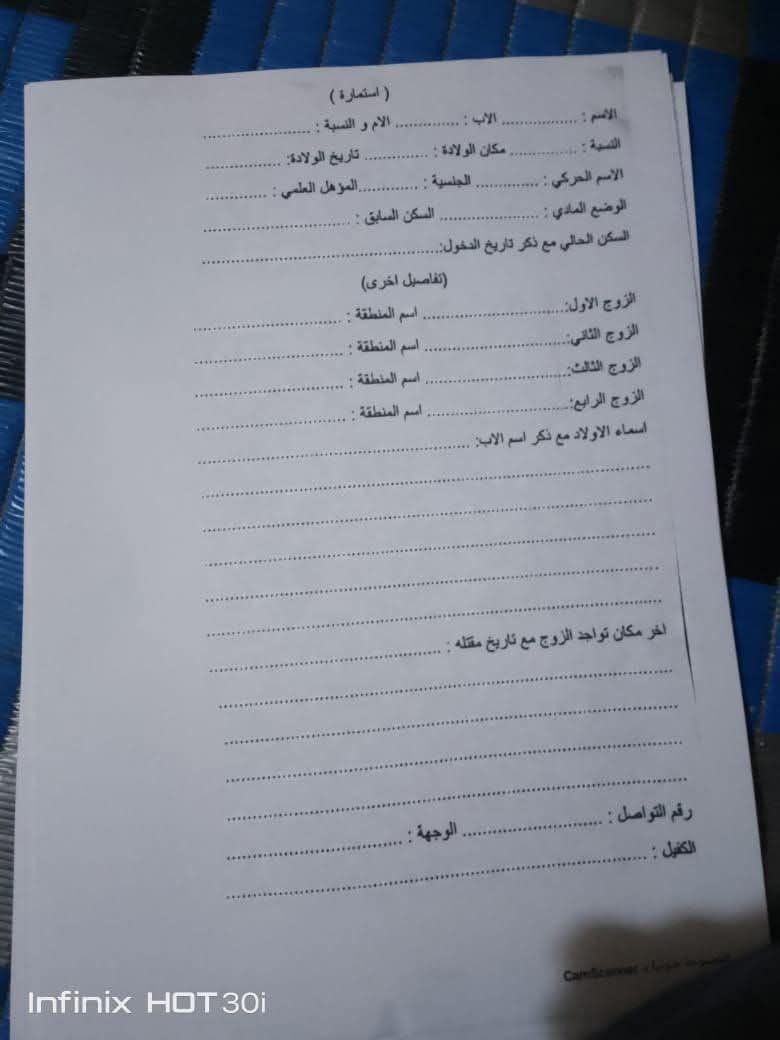 ( استمارة )
الاسم : ................. الاب : .............. الام و النسبة : .......................
النسبة : ............... مكان الولادة : .............. تاريخ الولادة: ................
الاسم الحركي : .............. الجنسية : .............المؤهل العلمي : .............
الوضع المادي : ...................... السكن السابق : ................................
السكن الحالي مع ذكر تاريخ الدخول:....................................................
(تفاصيل اخرى)
الزوج الاول:............................... اسم المنطقة : ................................
الزوج الثاني:............................... اسم المنطقة : ................................
الزوج الثالث:............................... اسم المنطقة : ................................
الزوج الرابع:............................... اسم المنطقة : ................................
اسماء الاولاد مع ذكر اسم الاب: ...........................................................
اخر مكان تواجد الزوج مع تاريخ مقتله : ..................................................
رقم التواصل : .............................. الوجهة : ......................................
الكفيل : ............................................................................................
CamScanner
Infinix HOT 30i